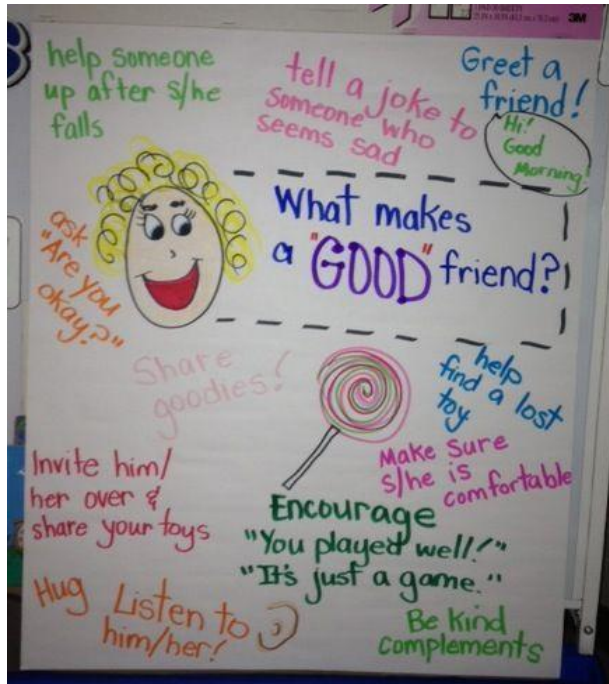 3M
help someone
up after s/he
falls
tell a joke to
someone who
seems sad
Greet a
friend!
Hi!
Good
Morning!
What makes
a "GOOD" friend?
ask
"Are you
okay?"
Share
goodies!
help
find a lost
toy
Make sure
s/he is
comfortable
Invite him/
her over &
share your toys
Encourage
"You played well!"
"It's just a game."
Hug
Listen to
him/her!
Be kind
complements